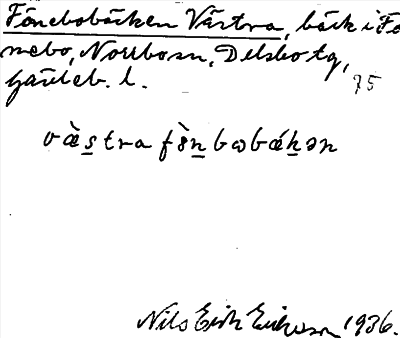 Fönebobäcken Västra, bäck i Fö
nebo, Norrbo sn, Delsbo tg,
Gävleb. l. 75
væ̀stra fö̀nbωbækən
Nils Erik Eriksson 1936.